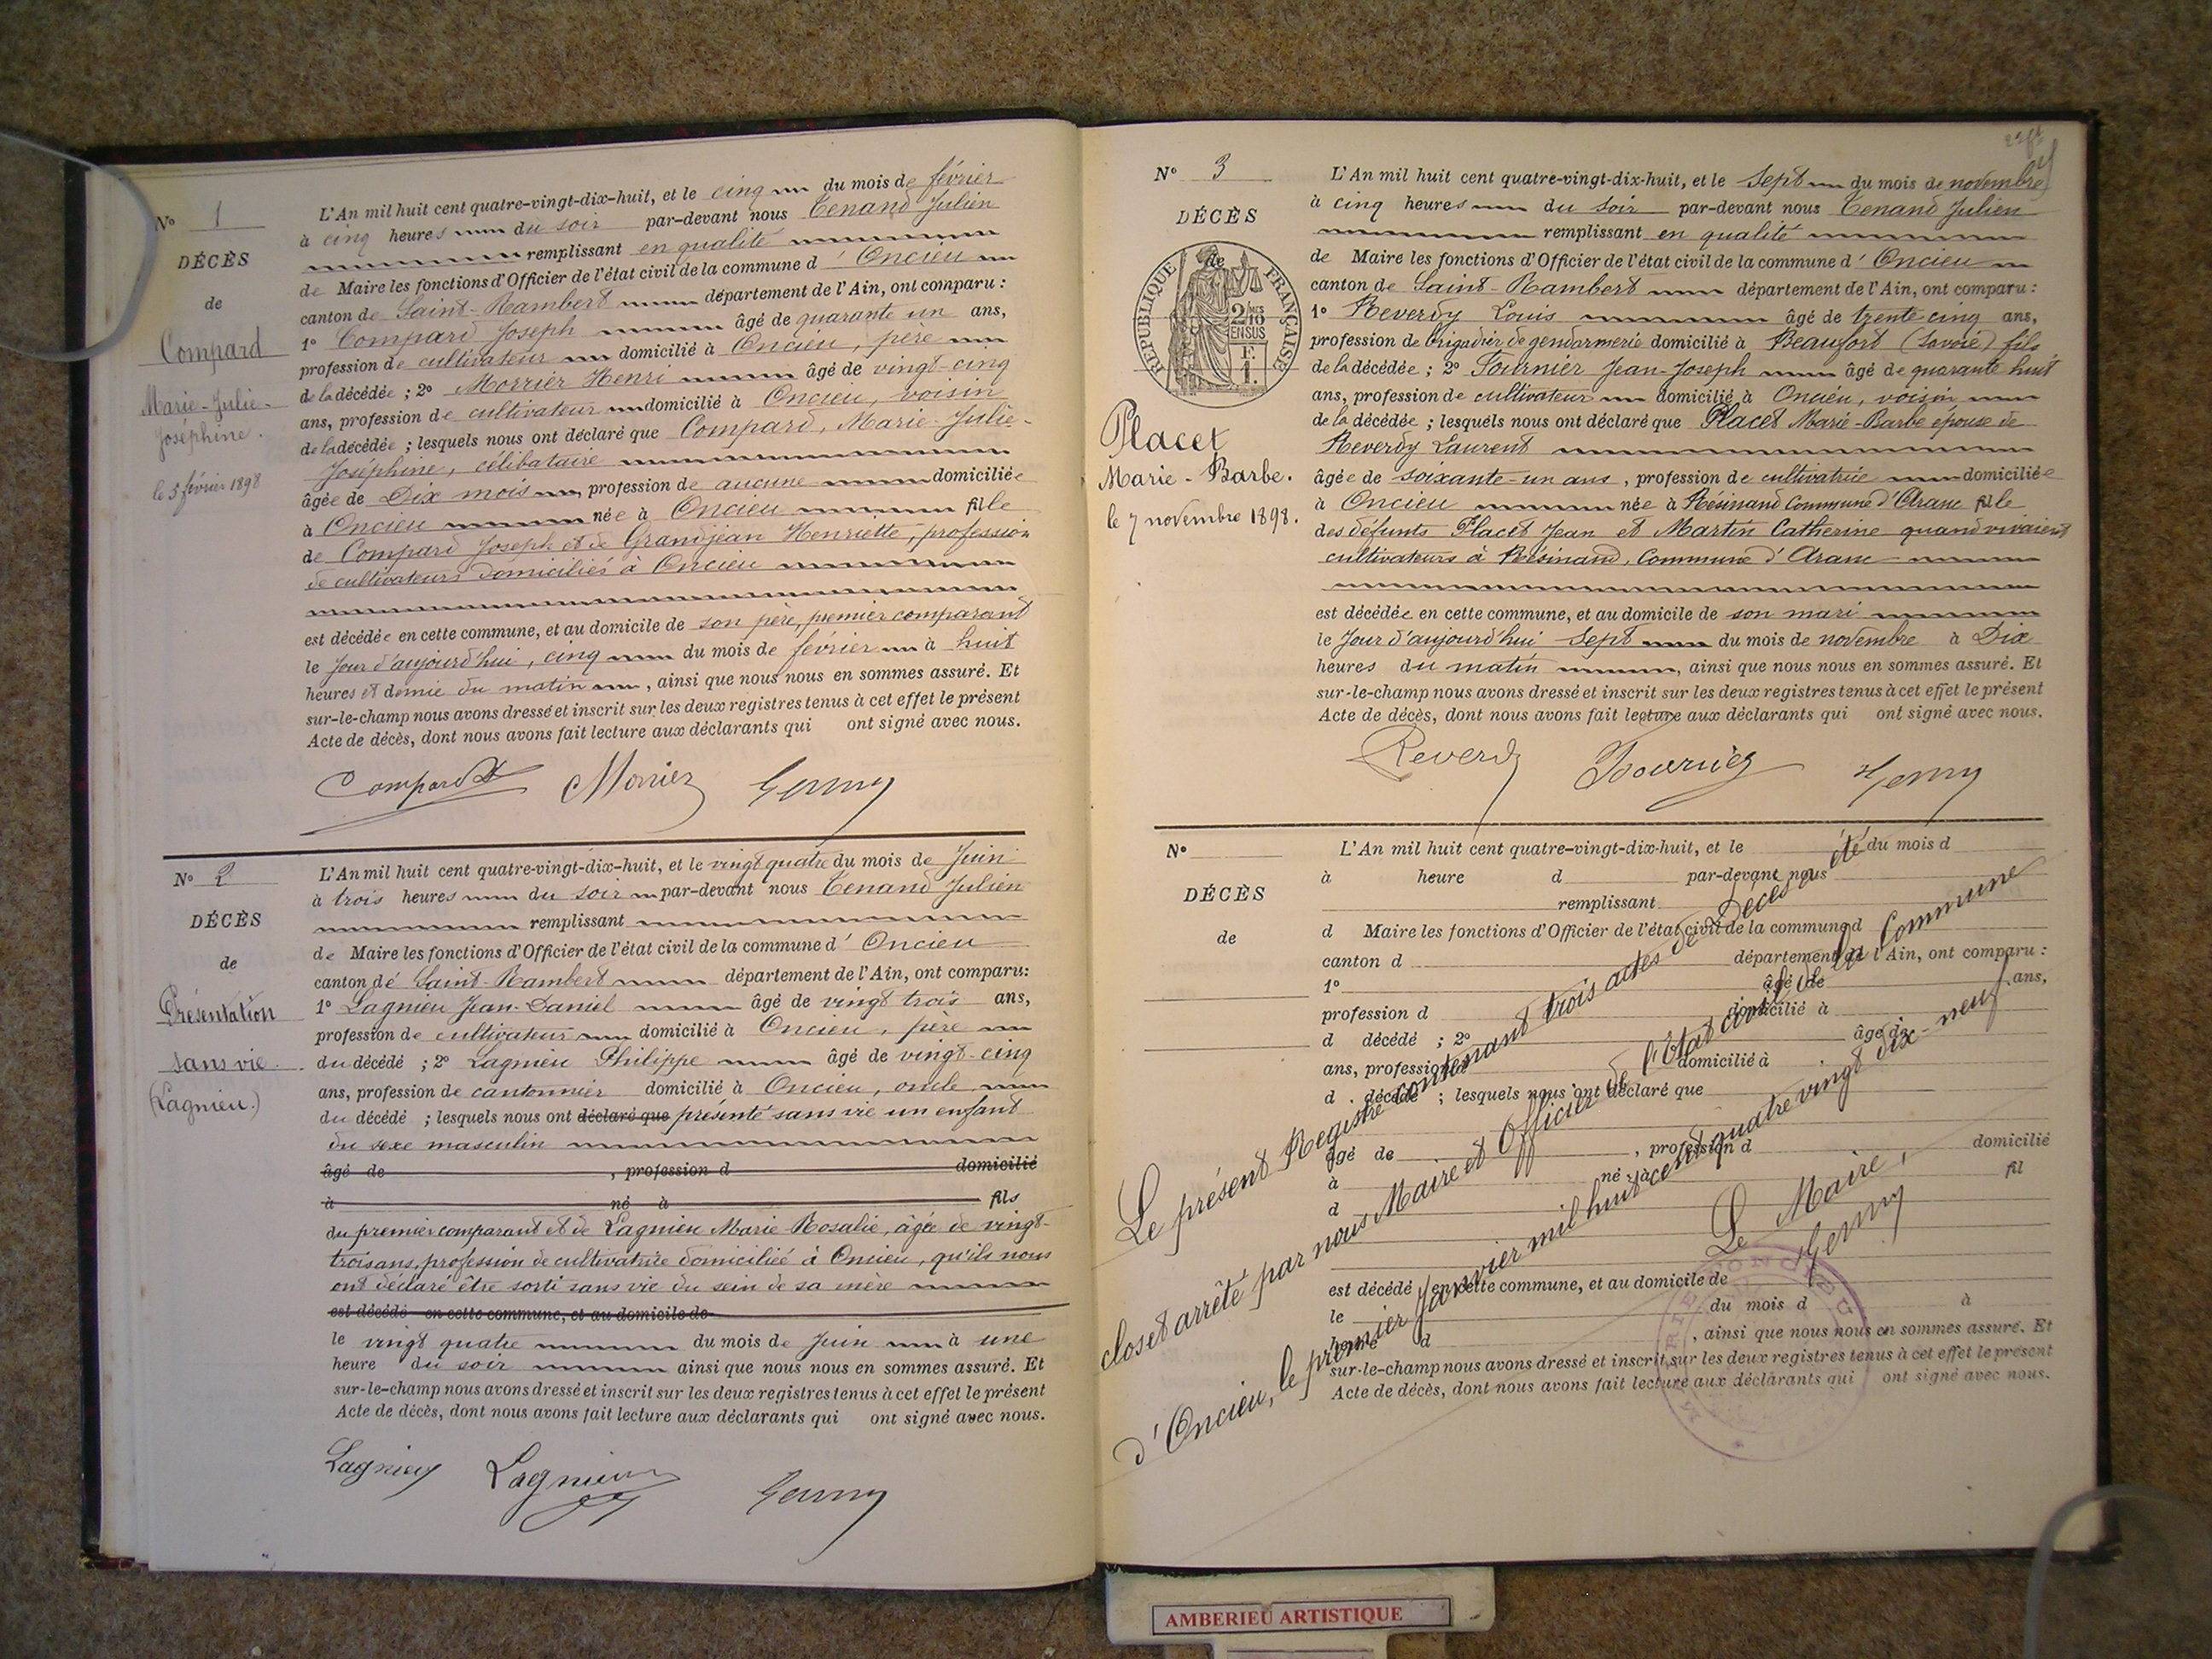 N° 1
DÉCÈS
de
Compard
Marie-Julie-
Joséphine.
le 5 février 1898
L'An mil huit cent quatre-vingt-dix-huit, et le cinq du mois de février
à cinq heures du soir par-devant nous Tenand Julien
remplissant en qualité
de Maire les fonctions d'Officier de l'état civil de la commune d'Oncieu
canton de Saint-Rambert département de l'Ain, ont comparu :
1° Compard Joseph âgé de quarante un ans,
profession de cultivateur domicilié à Oncieu, père
de la décédée ; 2° Morrier Henri âgé de vingt-cinq
ans, profession de cultivateur domicilié à Oncieu, voisin
de la décédée ; lesquels nous ont déclaré que Compard, Marie-Julie-
Joséphine, célibataire
âgée de Dix mois, profession de aucune domiciliée
à Oncieu née à Oncieu fille
de Compard Joseph et de Grandjean Henriette, profession
de cultivateurs domiciliés à Oncieu
est décédée en cette commune, et au domicile de son père, premier comparant
le Jour d'aujourd'hui, cinq du mois de février à huit
heures et demie du matin, ainsi que nous nous en sommes assuré. Et
sur-le-champ nous avons dressé et inscrit sur les deux registres tenus à cet effet le présent
Acte de décès, dont nous avons fait lecture aux déclarants qui ont signé avec nous.
Compard Morrier
N° 2
DÉCÈS
de
Présentation
sans vie.
(Lagnieu.)
L'An mil huit cent quatre-vingt-dix-huit, et le vingt quatre du mois de Juin
à trois heures du soir par-devant nous Tenand Julien
remplissant
de Maire les fonctions d'Officier de l'état civil de la commune d'Oncieu
canton de Saint-Rambert département de l'Ain, ont comparu:
1° Lagnieu Jean-Daniel âgé de vingt trois ans,
profession de cultivateur domicilié à Oncieu, père
du décédé ; 2° Lagnieu Philippe âgé de vingt-cinq
ans, profession de cantonnier domicilié à Oncieu, oncle
du décédé ; lesquels nous ont déclaré que présenté sans vie un enfant
du sexe masculin
âgé de , profession d domicilié
à né à fils
du premier comparant et de Lagnieu Marie Rosalie, âgée de vingt-
trois ans, profession de cultivatrice domiciliée à Oncieu, qu'ils nous
ont déclaré être sorti sans vie du sein de sa mère
est décédé en cette commune, et au domicile de
le vingt quatre du mois de Juin à une
heure du soir ainsi que nous nous en sommes assuré. Et
sur-le-champ nous avons dressé et inscrit sur les deux registres tenus à cet effet le présent
Acte de décès, dont nous avons fait lecture aux déclarants qui ont signé avec nous.
Lagnieu Lagnieu
N° 3
DÉCÈS
de
RÉPUBLIQUE FRANÇAISE
Placet
Marie-Barbe.
le 7 novembre 1898.
L'An mil huit cent quatre-vingt-dix-huit, et le Sept du mois de novembre
à cinq heures du soir par-devant nous Tenand Julien
remplissant en qualité
de Maire les fonctions d'Officier de l'état civil de la commune d'Oncieu
canton de Saint-Rambert département de l'Ain, ont comparu :
1° Reverdy Louis âgé de trente cinq ans,
profession de brigadier de gendarmerie domicilié à Beaufort (Savoie) fils
de la décédée ; 2° Fournier Jean-Joseph âgé de quarante huit
ans, profession de cultivateur domicilié à Oncieu, voisin
de la décédée ; lesquels nous ont déclaré que Placet Marie-Barbe épouse de
Reverdy Laurent
âgée de soixante-un ans, profession de cultivatrice domiciliée
à Oncieu née à Résinand Commune d'Aranc fille
des défunts Placet Jean et Martin Catherine quand vivaient
cultivateurs à Résinand, Commune d'Aranc
est décédée en cette commune, et au domicile de son mari
le Jour d'aujourd'hui Sept du mois de novembre à Dix
heures du matin, ainsi que nous nous en sommes assuré. Et
sur-le-champ nous avons dressé et inscrit sur les deux registres tenus à cet effet le présent
Acte de décès, dont nous avons fait lecture aux déclarants qui ont signé avec nous.
Reverdy Fournier
N°
DÉCÈS
de
L'An mil huit cent quatre-vingt-dix-huit, et le du mois d
à heure d par-devant nous
remplissant
d Maire les fonctions d'Officier de l'état civil de la commune d
canton d département de l'Ain, ont comparu :
1° âgé de ans,
profession d domicilié à
d décédé ; 2° âgé de
ans, profession d domicilié à
d décédé ; lesquels nous ont déclaré que
âgé de , profession d domicilié
à né à fil
d
est décédé en cette commune, et au domicile de
le du mois d à
heure d , ainsi que nous nous en sommes assuré. Et
sur-le-champ nous avons dressé et inscrit sur les deux registres tenus à cet effet le présent
Acte de décès, dont nous avons fait lecture aux déclarants qui ont signé avec nous.
Le présent Registre contenant trois actes de Décès a été
clos et arrêté par nous Maire et Officier de l'État civil de la Commune
d'Oncieu, le premier Janvier mil huit cent quatre vingt dix-neuf
Le Maire,
AMBERIEU ARTISTIQUE